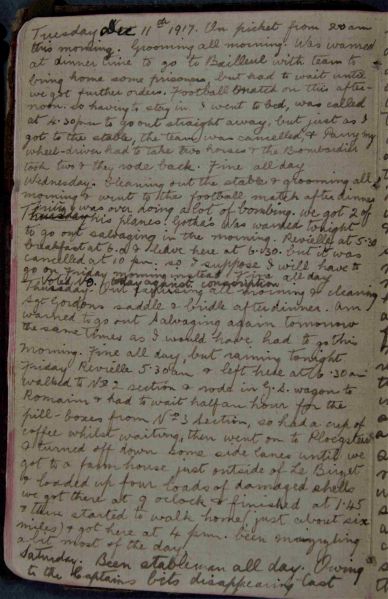 Tuesday Dec 11th 1917. On picket from 2.0 am
this morning. Grooming all morning. Was warned
at dinner time to go to Bailleul with team to
bring home some prisoners, but had to wait until
we got further orders. Football match on this after-
noon. so having to stay in I went to bed, was called
at 4.30pm to go out straight away, but just as I
got to the stable, the team was cancelled, & Parry my
wheel-driver had to take two horses & the Bombardier
took two & they rode back. Fine all day
Wednesday. Cleaning out the stable & grooming all
morning & went to the football match after dinner
Fritz was over doing a lot of bombing. we got 2 of
his planes, Gothas. Was warned tonight
to go out salvaging in the morning. Reveille at 5.30
breakfast at 6.0 & leave here at 6.30. but it was
cancelled at 10 pm. so I suppose I will have to
go on Friday morning instead. Fine all day
Voted No. today against conscription
Thursday. all morning & cleaning
Sgt Gordons saddle & bridle after dinner. Am
warned to go out salvaging again tomorrow
the same times as I would have had to go this
morning. Fine all day, but raining tonight.
Friday Reveille 5.30am & left here at 6.30am
walked to No 2 section & rode in G.S. wagon to
Romarin & had to wait half an hour for the
pill-boxes from No 3 Section, so had a cup of
coffee whilst waiting, then went on to
& turned off down some side lanes until we
got to a farm house just outside of Le Bizet
& loaded up four loads of damaged shells
we got there at 9 oclock & finished at 1.45
& then started to walk home, just about six
miles, & got here at 4 pm. been
a bit most of the day.
Saturday. Been stableman all day. Owing
to the Captains bits disappearing last